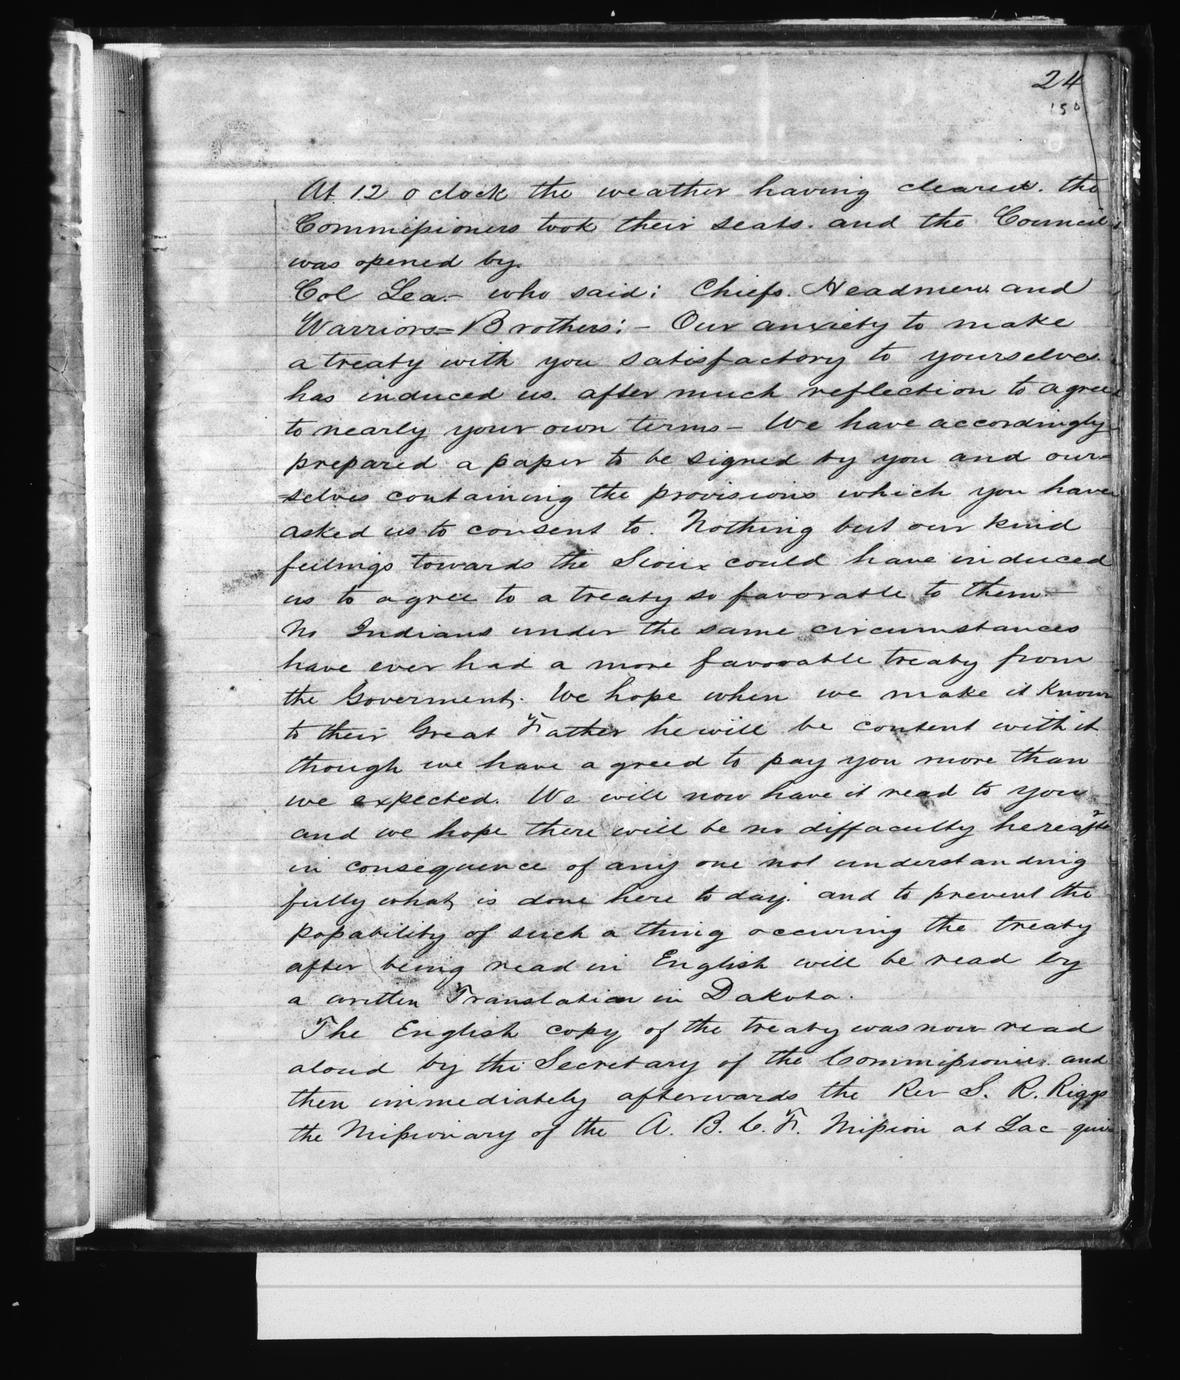 24
150
At 12 o clock the weather having cleared. the
Commissioners took their seats. and the Council
was opened by.
Col Lea.- who said: Chiefs. Headmen and
Warriors=Brothers:- Our anxiety to make
a treaty with you satisfactory to yourselves
has induced us. after much reflection to agree
to nearly your own terms- We have accordingly
prepared a paper to be signed by you and our=
selves containing the provisions which you have
asked us to consent to. Nothing but our kind
feelings towards the Sioux could have induced
us to agree to a treaty so favorable to them-
No Indians under the same circumstances
have ever had a more favorable treaty from
the Goverment. We hope when we make it Known
to their Great Father he will be content with it
though we have agreed to pay you more than
we expected. We will now have it read to you
and we hope there will be no diffaculty hereafter
in consequence of any one not understanding
fully what is done here to day. and to prevent the
popability of such a thing occuring the treaty
after being read in English will be read by
a written Translation in Dakota.
The English copy of the treaty was now read
aloud by the Secretary of the Commissioners. and
then immediately afterwards the Rev S. R. Riggs
the Missionary of the A. B. C. F. Mission at Lac qui